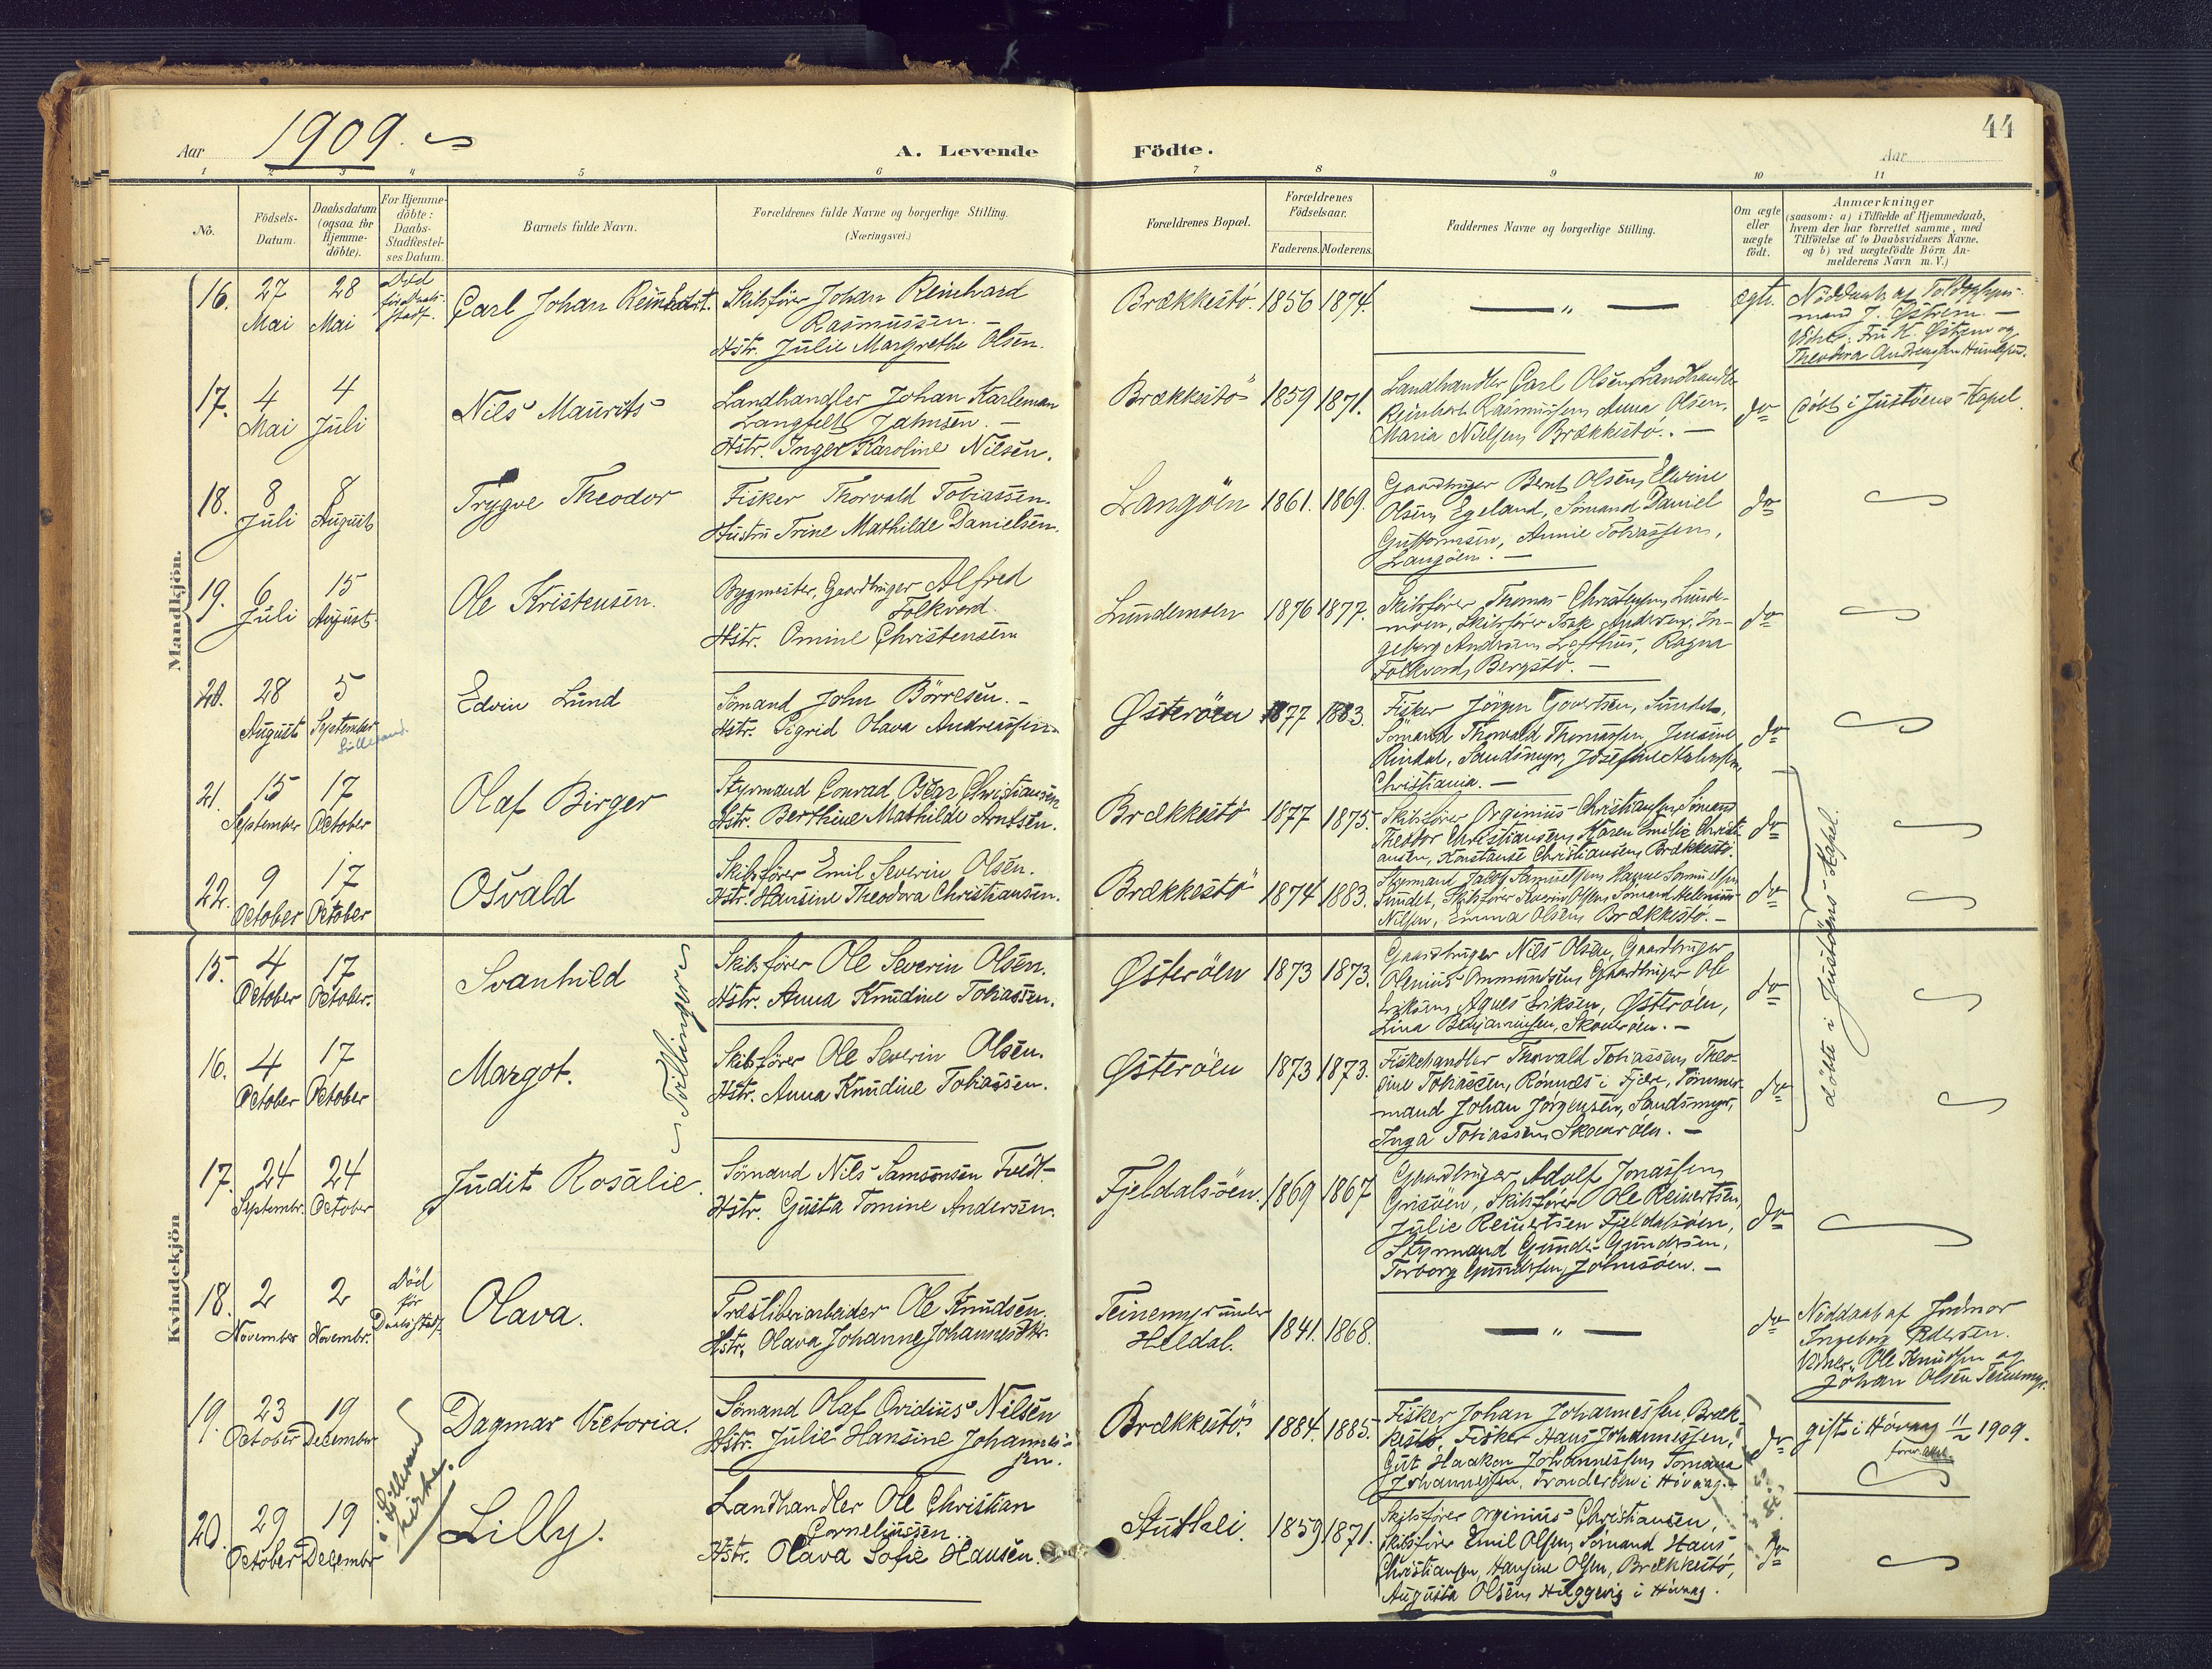 44
Aar 1909.
A. Levende Födte.
Aar
1 2 3 4 5 6 7 8 9 10 11
No.
Födsels-Datum.
Daabsdatum (ogsaa for Hjemme-döbte).
For Hjemme-döbte: Daabs-Stadfæstel-ses Datum.
Barnets fulde Navn.
Forældrenes fulde Navne og borgerlige Stilling.
(Næringsvei.)
Forældrenes Bopæl.
Forældrenes Födselsaar.
Faderens. Moderens.
Faddernes Navne og borgerlige Stilling.
Om ægte eller uægte födt.
Anmærkninger
(saasom: a) i Tilfælde af Hjemmedaab,
hvem der har forrettet samme, med
Tilföielse af to Daabsvidners Navne,
og b) ved uægtefödte Börn An-
melderens Navn m. V.)
Mandkjön.
16. 27 Mai 28 Mai Carl Johan Reinhart.
Skibsfører Johan Reinhard
Rasmussen.
Hstr. Julie Margrethe Olsen.
Brækkestö. 1856 1874. — " — ægte.
Nöddaab af
mand J. Østrem.
Vidner: Fru K. Østrem og
Theodora
17. 4 Mai 4 Juli Nils Maurits
Landhandler Johan Karleman
Langfelt Jahnsen.
Hstr. Inger Karoline Nilsen.
Brækkestö 1859 1871.
Landhandler Carl Olsen, Landhandl.
Reinhart Rasmussen, Anna Olsen,
Maria Nielsen, Brækkestö.
do döbt i Justöens Kapel.
18. 8 Juli 8 August Trygve Theodor
Fisker Thorvald Tobiassen.
Hustru Trine Mathilde Danielsen.
Langöen 1861. 1869.
Gaardbruger Bernt Olsen, Elvine
Olsen, Egeland, Sömand Daniel
Guttormsen, Annie Tobiassen,
Langöen.
do
19. 6 Juli 15 August Ole Kristensen.
Bygmester, Gaardbruger Alfred
Folkvord.
Hstr. Omine Christensen
Lundemoen 1876 1877.
Skibsfører Thomas Christensen, Lunde-
moen, Skibsfører Isak Andersen, In-
geborg Andersen Lofthus, Ragna
Folkvord, Bergstö.
do
20. 28 August 5 September Edvin Lund
Lillesand.
Sömand John Börresen.
Hstr. Sigrid Olava Andreassen
Østeröen 1877 1883.
Fisker Jörgen Govertsen, Sundet,
Sömand Thorvald Thomassen, Jensine
Sandsmyr, Josefine
Christiania.
do
21. 15 September 17 October Olaf Birger
Styrmand Conrad Oscar Christiansen
Hstr. Berthine Mathilde Arntsen.
Brækkestö 1877 1875.
Skibsfører Orginius Christiansen, Sömand
Theodor Christiansen, Maren Emilie Christi-
ansen, Konstanse Christiansen, Brækkestö.
do
22. 9 October 17 October Osvald
Skibsfører Emil Severin Olsen.
Hstr. Hansine Theodora Christiansen.
Brækkestö 1874 1883.
Styrmand Jakob Samuelsen, Hanne Samuelsen
Sundet, Skibsfører Severin Olsen, Sömand
Nilsen, Emma Olsen, Brækkestö.
do
döbte i Justöens Kapel.
Kvindekjön
15. 4 October 17 October. Svanhild
Skibsfører Ole Severin Olsen.
Hstr. Anna Knudine Tobiassen.
Østeröen 1873 1873.
Gaardbruger Nils Olsen, Gaardbruger
Olenius Ommundsen, Gaardbruger Ole
Eriksen, Agnes Eriksen, Østeröen,
Lina Benjaminsen, Skoueröen.
do
Tvillinger
16. 4 October 17 October Margot.
Skibsfører Ole Severin Olsen.
Hstr. Anna Knudine Tobiassen.
Østeröen 1873 1873.
Fiskehandler Thorvald Tobiassen, Theo-
dine Tobiassen, Rönnes i Fjære, Tömmer-
mand Johan Jörgensen, Sandsmyr,
Inga Tobiassen, Skoueröen.
do
17. 24 Septembr. 24 October Judit Rosalie.
Sömand Nils Samsonsen Tvedt.
Hstr. Gusta Tomine Andersen.
Fjeldalsöen. 1869 1867
Gaardbruger Adolf Jonassen,
Grisöen, Skibsfører Ole Reinertsen,
Julie Reinertsen Fjeldalsöen,
Styrmand Gunder Gundersen,
Torborg Gundersen, Johnsöen.
do
18. 2 November 2 Novembr. Död för Daabsstadf. Olava.
Træsliberiarbeider Ole Knudsen.
Hstr. Olava Johanne Johannesdtr.
Teinemyr under
Heldal.
1841. 1868. — " — do
Nöddaab af Jordmor
Ingeborg Pedersen.
Vidner: Ole Knudsen og
Johan Olsen Teinemyr.
19. 23 October 19 December Dagmar Victoria.
Sömand Olaf Ovidius Nilsen
Hstr. Julie Hansine Johannes-
sen.
Brækkestö. 1884. 1885.
Fisker Johan Johannessen, Bræk-
kestö, Fisker Hans Johannessen,
Gut Haakon Johannessen, Tomana
Johannessen, i Hövaag.
do gift i Hövaag 11/2 1909.
i Lillesand kirke.
20. 29 October 19 Decembr Lilly.
Landhandler Ole Christian
Corneliussen
Hstr. Olava Sofie Hansen.
Stutlei. 1859 1871.
Skibsfører Orginius Christiansen,
Skibsfører Emil Olsen, Sömand Hans
Christiansen, Hansine Olsen, Brækkestö,
Augusta Olsen, i Hövaag.
do